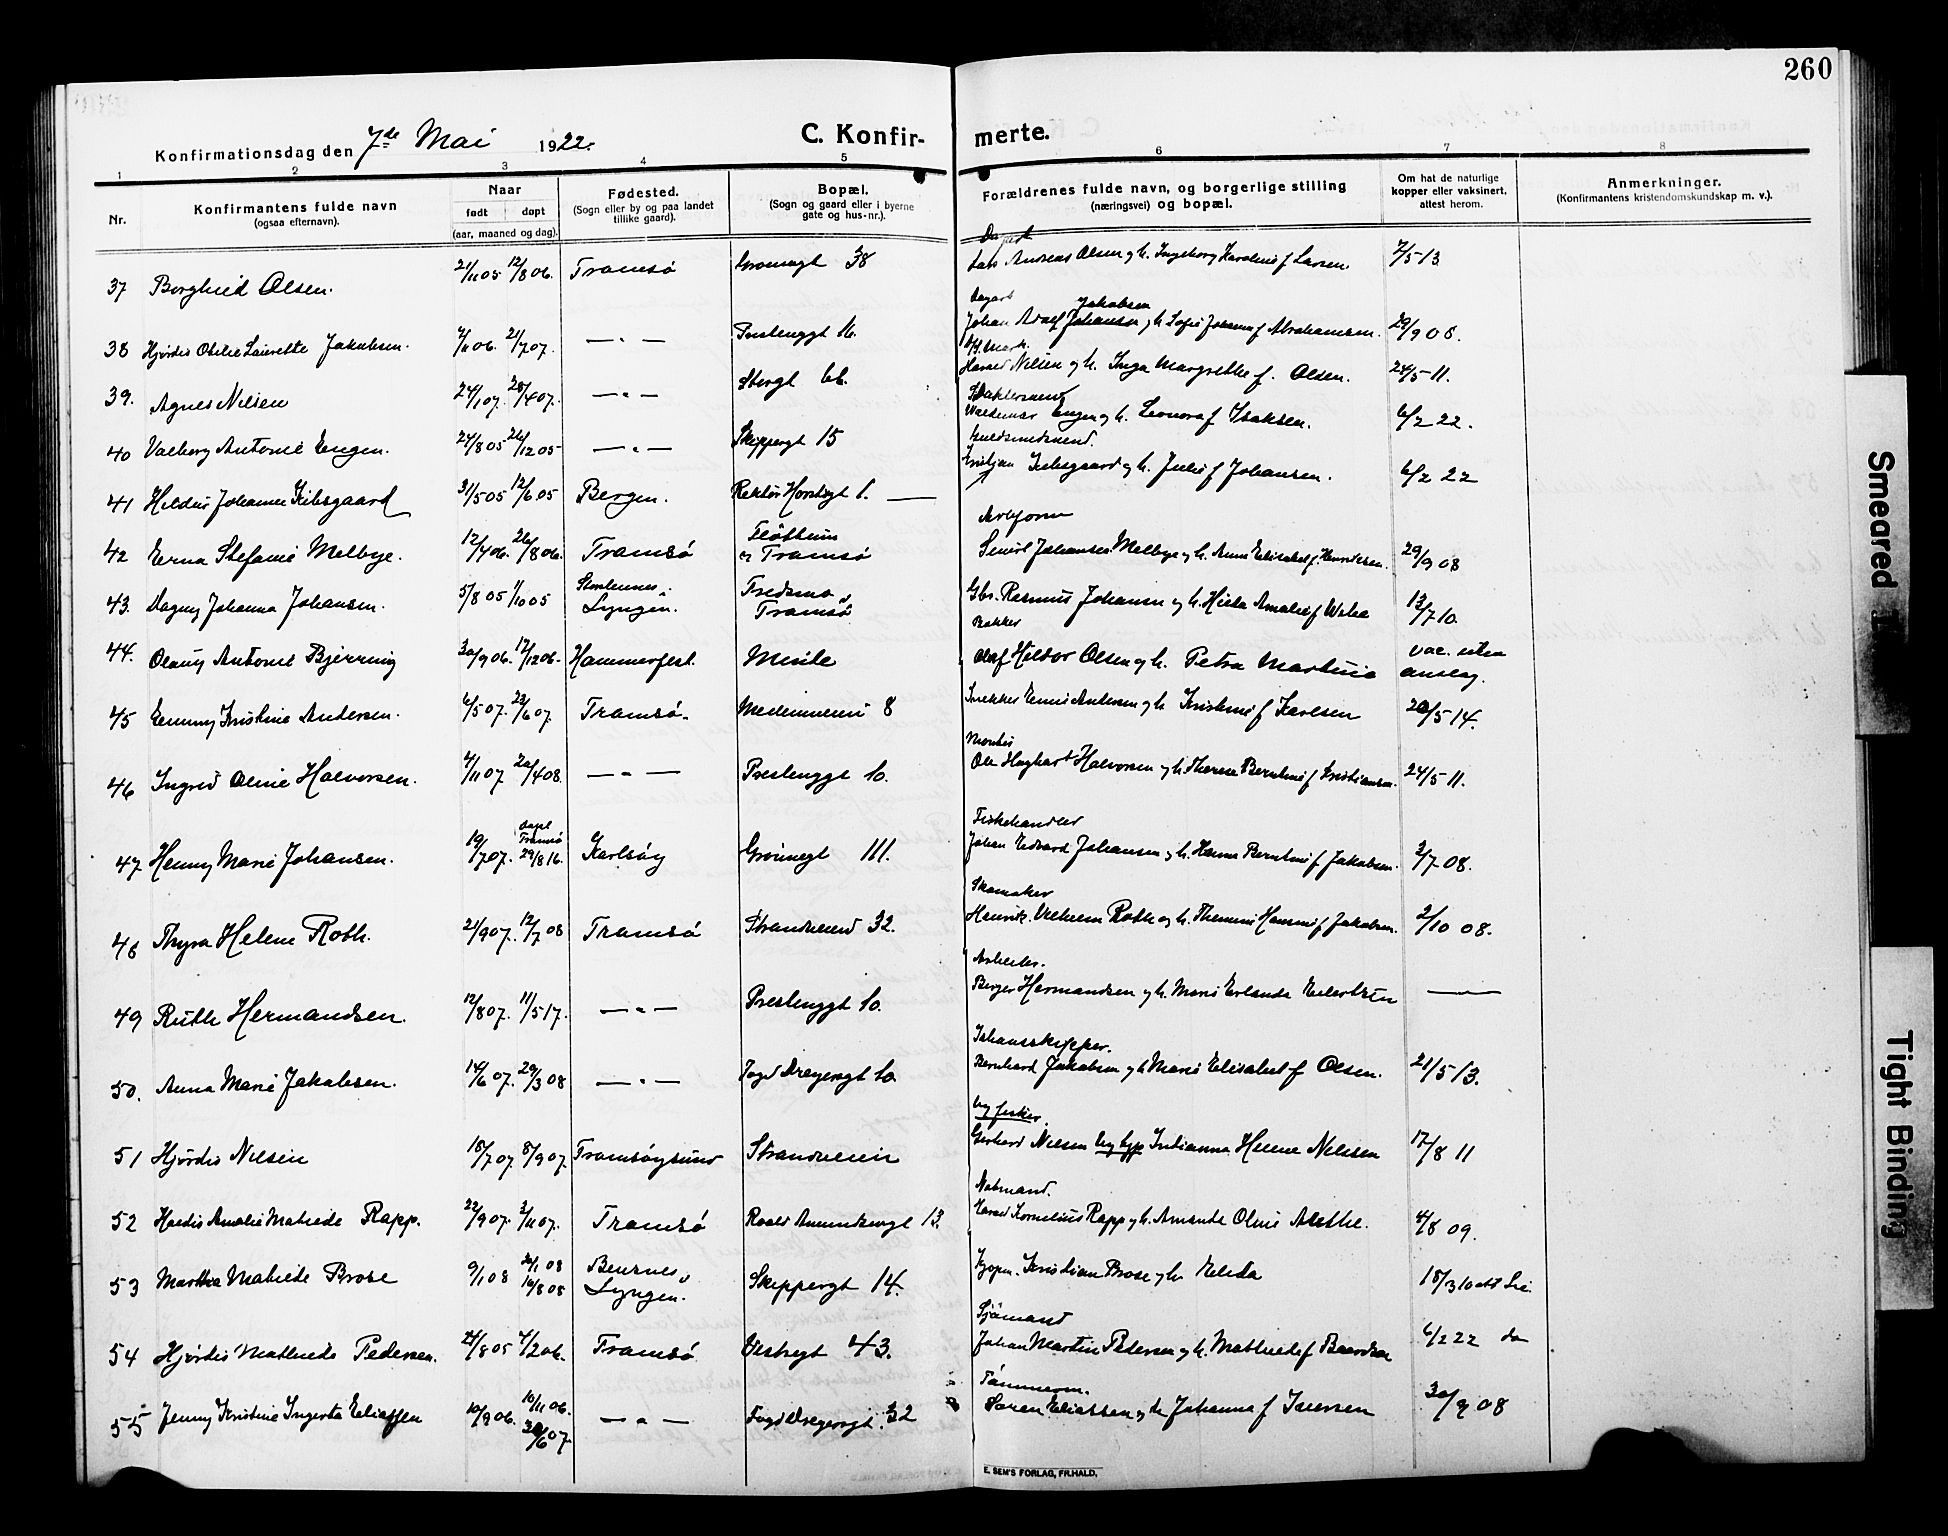 260
Konfirmationsdag den 7de Mai 1922.
C. Konfirmerte.
1 2 3 4 5 6 7 8
Nr.
Konfirmantens fulde navn
(ogsaa efternavn).
Naar
født døpt
(aar, maaned og dag).
Fødested.
(Sogn eller by og paa landet
tillike gaard).
Bopæl.
(Sogn og gaard eller i byerne
gate og hus-nr.).
Forældrenes fulde navn, og borgerlige stilling
(næringsvei) og bopæl.
Om hat de naturlige
kopper eller vaksinert,
attest herom.
Anmerkninger.
(Konfirmantens kristendomskundskap m. v.).
37 Borghild Olsen. 21/11 05 12/8 06. Tromsø Grønnegt 38 Lars Andreas Olsen og h. Ingeborg Karoline f Larsen 7/5 13
Jakobsen
38 Hjørdis Otelie Laurette Jakobsen. 21/7 07. — „ — 16. Johan Adolf Johansen og h. Sofie Johanna f Abrahamsen. 29/9 08.
39. Agnes Nilsen 24/1 07. 28/4 07. — „ — Storgt 66. Harald Nilsen og h. Inga Margrethe f. Olsen. 24/5 11.
40 Valborg Antonie Engen. 24/8 05 26/12 05 — „ — Skippergt 15 Waldemar Engen og h. Leonora f Isaksen. 6/2 22.
41 Johanne Kibsgaard 31/5 05 12/6 05 Bergen. Rektor Horstsgt 1. — Kristian Kibsgaard og h. Julie f Johansen. 6/2 22
Flöttum
42 Erna Stefanie Melbye. 12/4 06. 26/8 06. Tromsö Tromsö Johansen Melbye og h. Anna Elisabet f. 29/9 08
43. Dagny Johanna Johansen. 5/8 05 1/10 05 Lyngen. Tromsö Gbr. Rasmus Johansen og h. Hilda Amalie f 13/7 10.
Bakker
44. Olaug Antonie Bjerring 30/9 06. 17/12 06. Hammerfest. Minde Olaf Heldor Olsen og h. Petra Martinie vac. uten
anslag.
45 Emmy Kristine Andersen. 6/5 07. 23/6 07. Tromsö. 8 Snekker Andersen og h. Kristine f Karlsen 20/5 14.
46 Ingrid Oline Halvorsen. 4/11 07. 20/4 08. — „ — Prestenggt 10. Ole Halvorsen og h. Therese Berntine f Kristiansen. 24/5 11.
døpt
Tromsö
Fiskehandler
47 Henny Marie Johansen. 19/7 07. 29/8 16. Karlsöy Grönnegt 111. Johan Edvard Johansen og h. Hanna Berntine f Jakobsen. 3/7 08.
Skomaker
48 Thyra Helene Roth. 21/9 07. 12/7 08 Tromsö Strandveien 32. Henrik Vilhelm Roth og h. f Jakobsen. 2/10 08.
Arbeider.
49 Ruth Hermandsen. 12/8 07. 11/5 17. — „ — Prestenggt 10. Birger Hermandsen og h. Marie Erlanda Eilertsen —
Ishavsskipper.
50. Anna Marie Jakobsen. 14/6 07. 29/3 08 — „ — Fogd Dreyersgt 10. Bernhard Jakobsen og h Marie Elisabet f Olsen. 21/5 13.
ug fisker.
51 Hjördis Nilsen 18/7 07 8/9 07. Tromsöysund Strandveien Gerhard Nilsen Julianna Helene Nilsen 17/8 11
Notmand.
52 Hordis Amalie Matilde Rapp. 22/9 07. 3/11 07. Tromsö Roald Amundsensgt 13. Kornelius Rapp og h. Amanda Oline 4/8 09.
53 Martha Matilde Brose 9/1 08 16/8 08 Lyngen. Skippergt 14. Kristian Brose og h. Elida 18/3 10
Sjömand
54 Hjördis Mathilde Pedersen. 24/8 05 4/2 06. Tromsö Vestregt 43. Johan Martin Pedersen og h. Mathilde f Baardsen 6/2 22 do
Tömmerm.
55 Jenny Kristine Ingerta Eliassen 10/9 06. 10/11 06. 30/6 07. — „ — Fogd Dreyersgt. 32 Sören Eliassen og h. Johanna f Iversen 30/9 08
E. SEM'S FORLAG, FR.HALD.
Smeared
Tight Binding